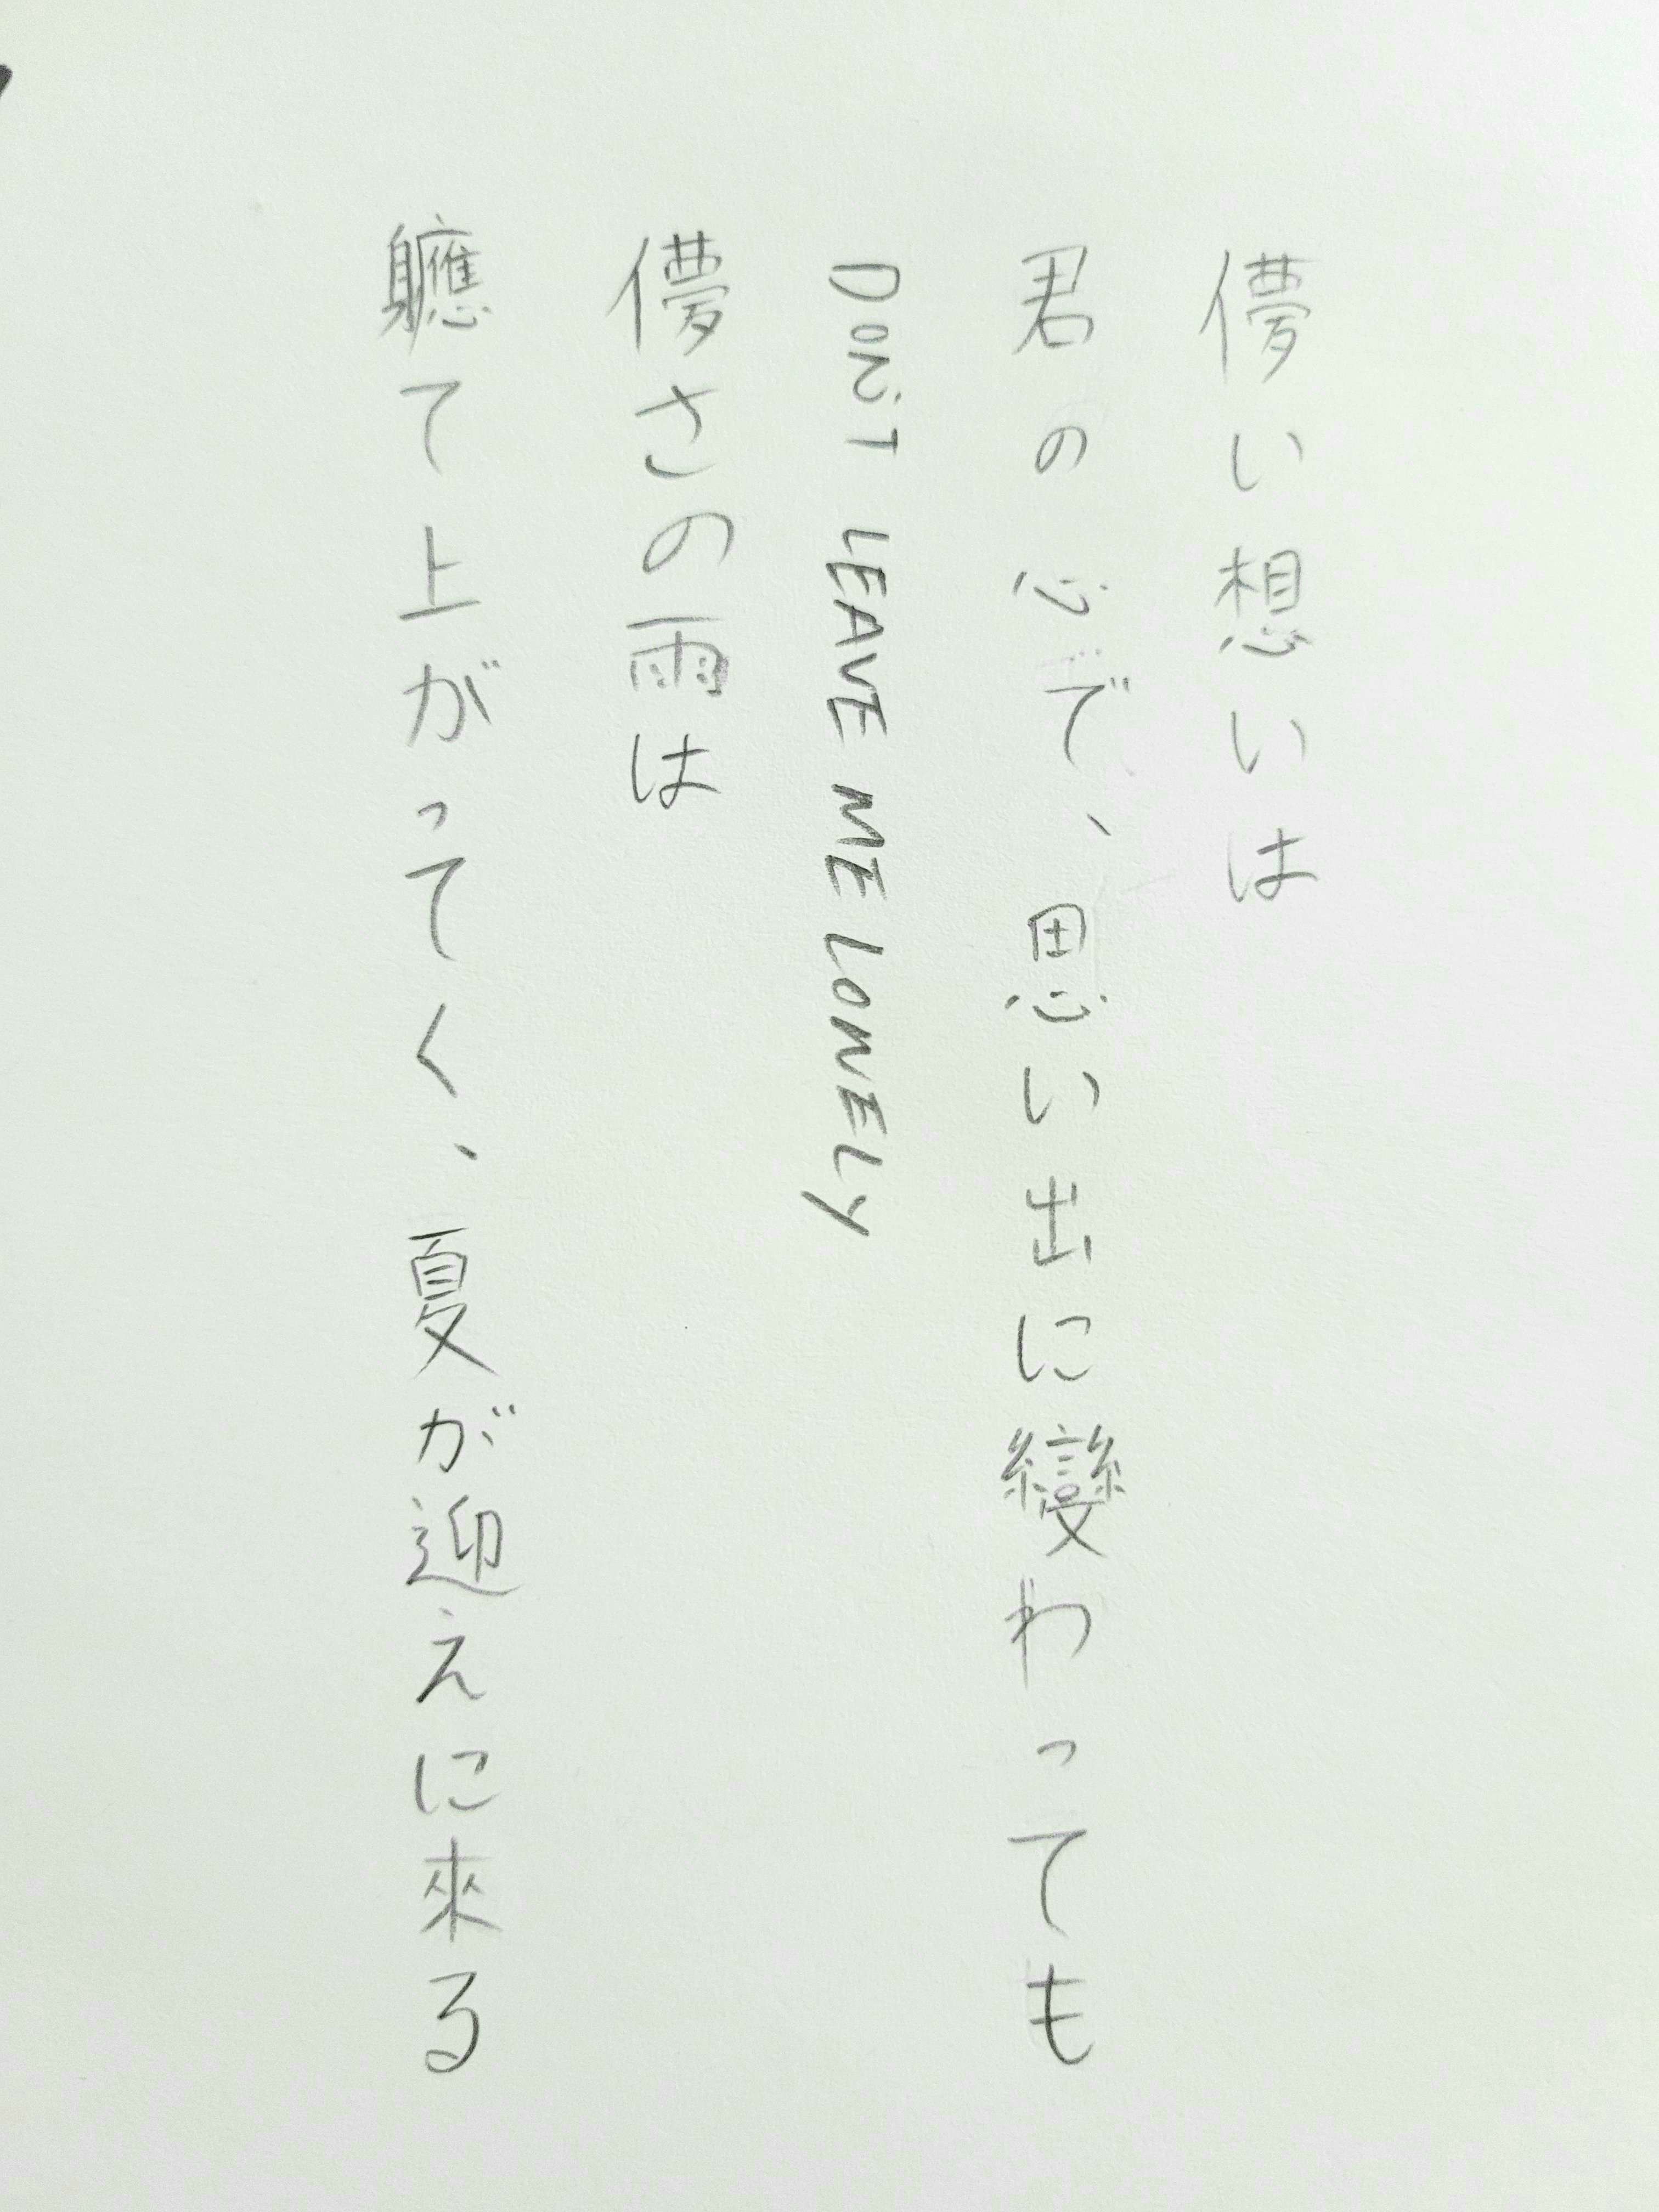 儚い想いは
君の心で、思い出に變わっても
DON'T LEAVE ME LONELY
儚さの雨は
軈て上がってく、夏が迎えに來る